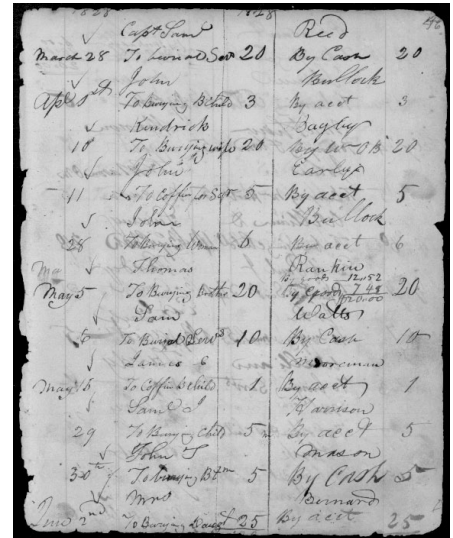 1828 1828
Capt Sam Reed
March 28 To burial Sert 20 By Cash 20
John Bullock
Apl 1 To Burying B child 3 By acct 3
Kendrick Bagby
10 To Burying wife 20 By 20
John Earlys
11 To Coffin for Sert 5 By acct 5
John Bullock
28 To Burying 6 By acct 6
Thomas Rankin
May 5 To Burying 20 By 7 48 20
Sam Watts
6 To Burial Servt 10 By Cash 10
James C Moorman
May 15 To Coffin B child 1 By acct 1
Saml J Harrison
29 To Burying Child 5 By acct 5
John T Mason
30th To burying 5 By Cash 5
Mrs Bernard
June 2nd To Burying Daugt 25 By acct 25